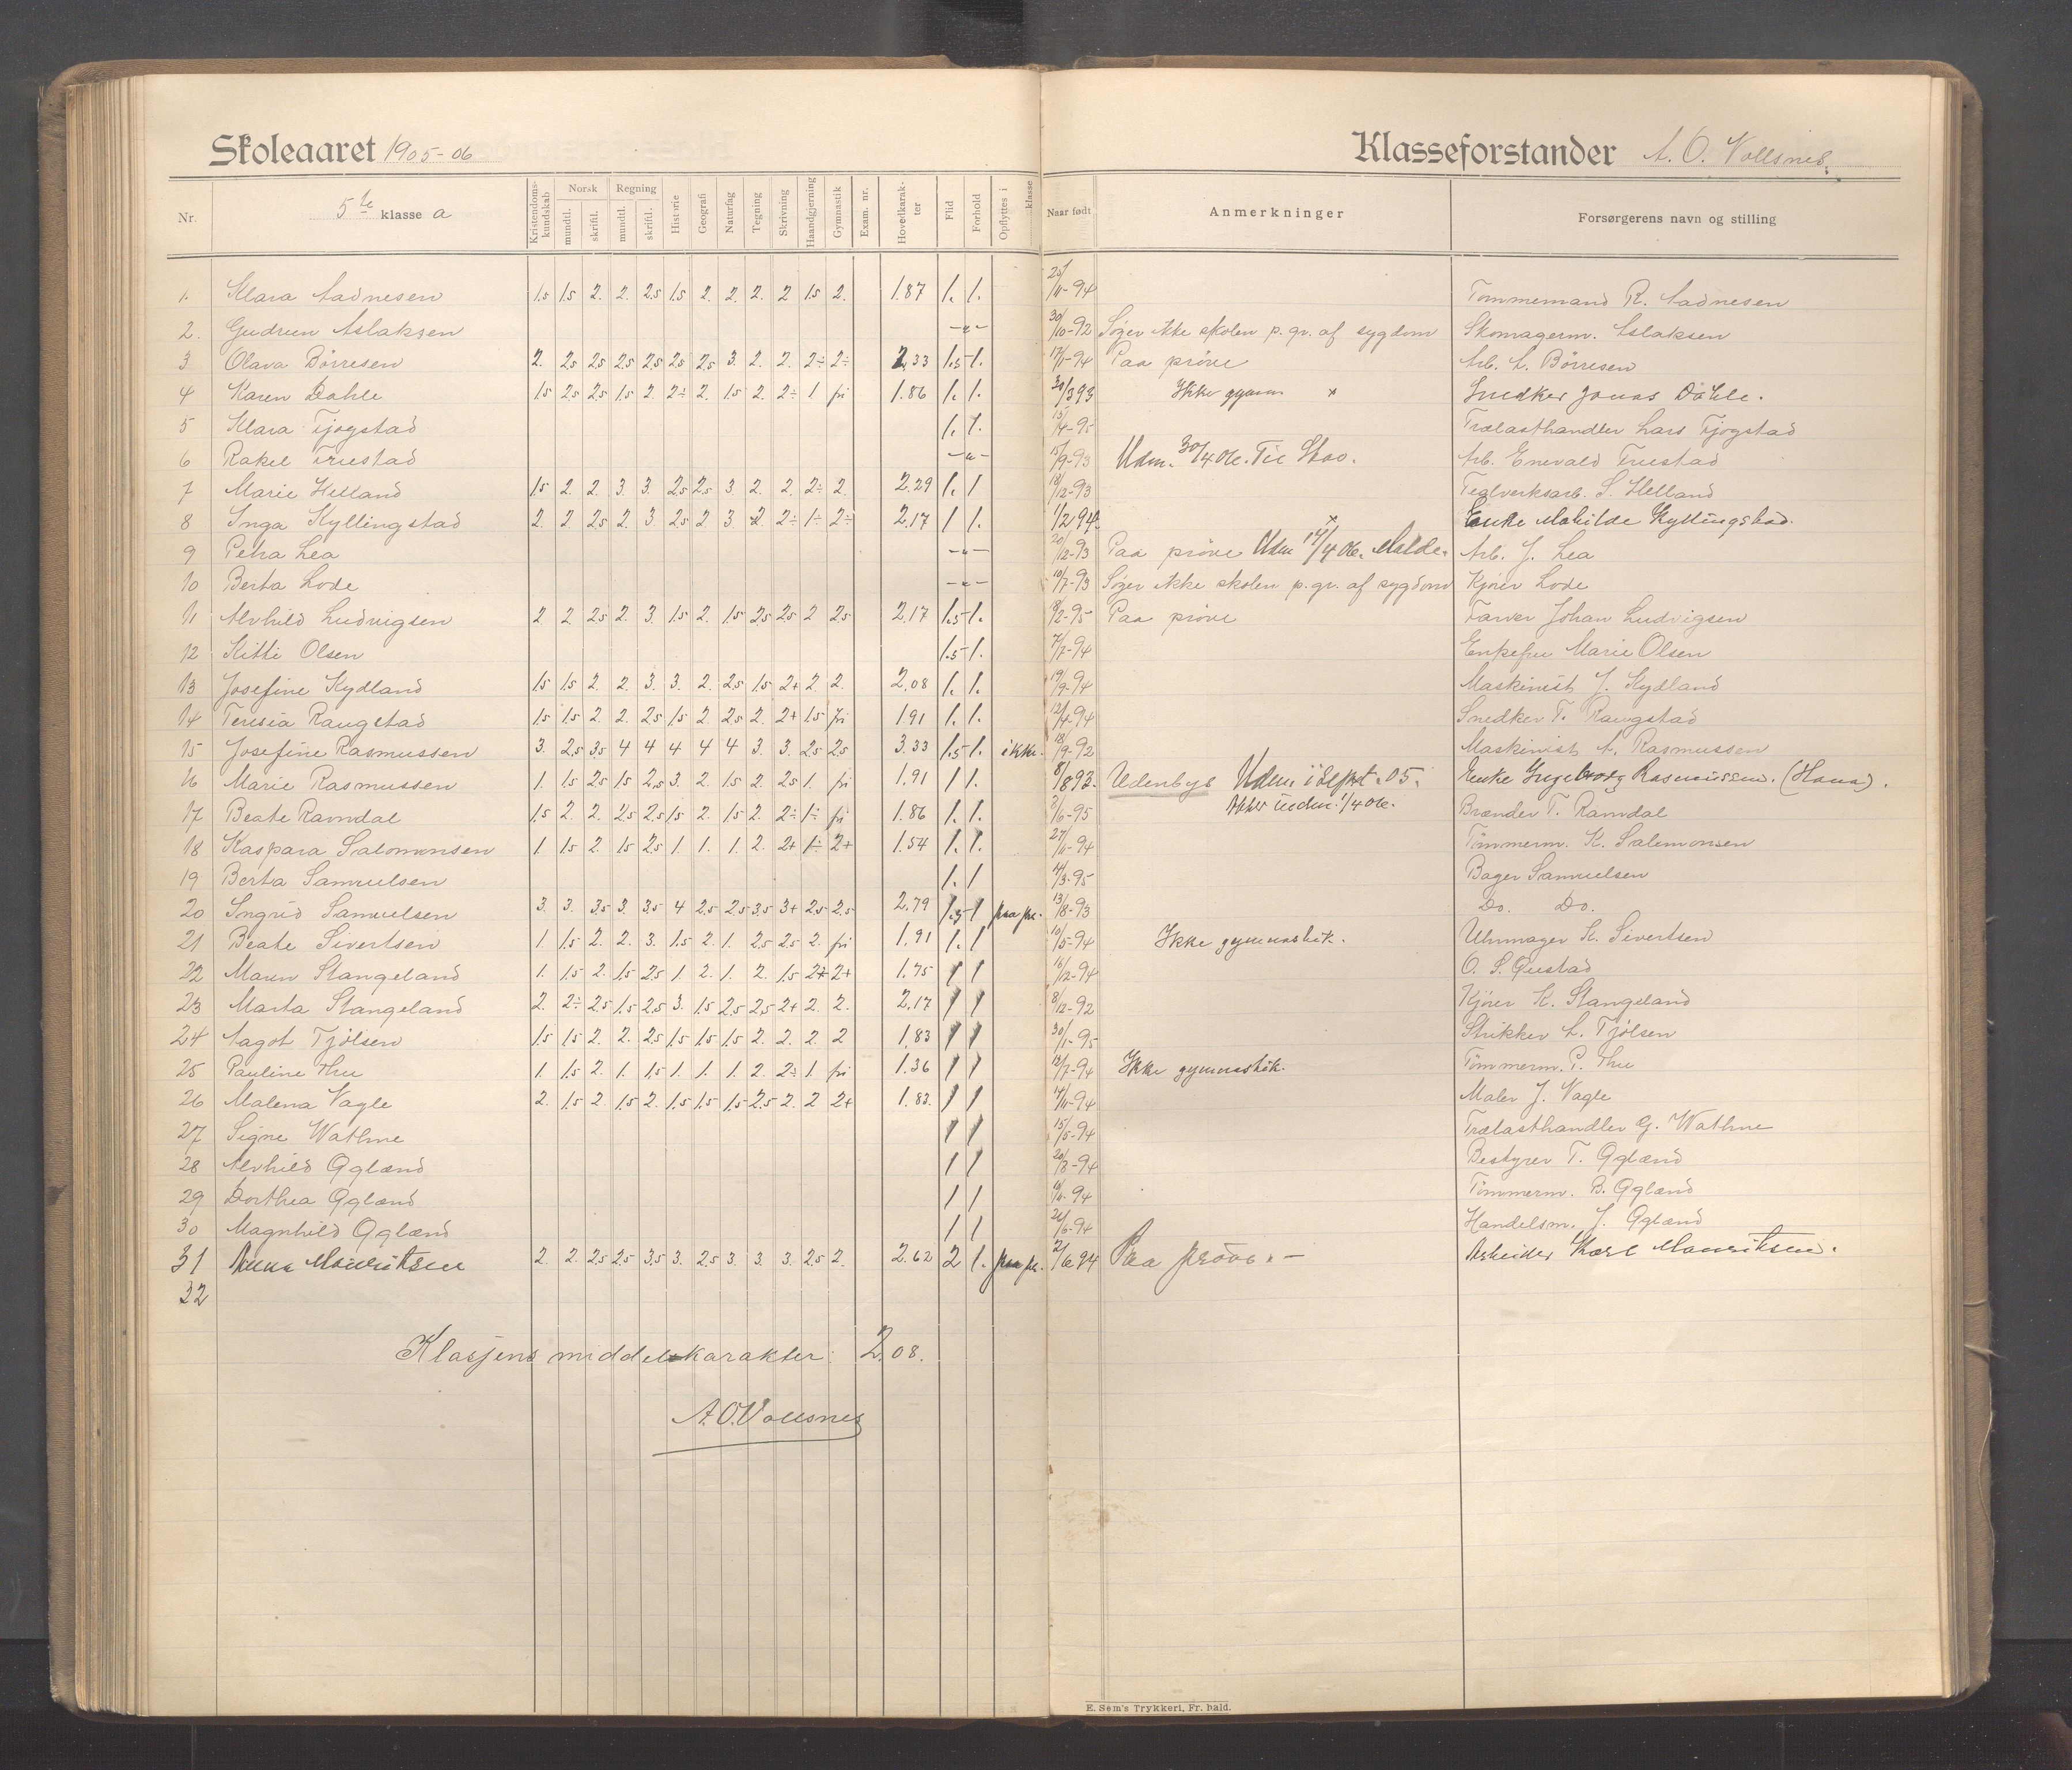 Skoleaaret 1905-06
Klasseforstander A. O. Vollsnes.
Nr. 5te klasse a Kristendomskundskab Norsk mundtl. skriftl. Regning mundtl. skriftl. Historie Geografi Naturfag Tegning Skrivning Haandgjerning Gymnastik Exam. nr. Hovedkarakter Flid Forhold Opflyttes i klasse Naar født Anmerkninger Forsørgerens navn og stilling
1. Klara Aadnesen 1.5 1.5 2. 2. 2.5 1.5 2. 2. 2. 2 1.5 2. 1.87 1. 1. 25/11-94 Tømmermand R. Aadnesen
2. Gudrun Aslaksen -"- 30/10-92 Søger ikke skolen p. gr. af sygdom Skomagerm. Aslaksen
3 Olava Børresen 2. 2.5 2.5 2.5 2.5 2.5 2.5 3. 2. 2. 2÷ 2÷ 2.33 1.5 1. 17/11-94 Paa prøve Arb. L. Børresen
4 Karen Dahle 1.5 2.5 2.5 1.5 2. 2÷ 2. 1.5 2. 2÷ 1 fri 1.86 1. 1. 30/3 93 Ikke gymn x Snedker Jonas Dahle.
5 Klara Tjøgstad 1. 1. 15/4-95 Trælasthandler Lars Tjøgstad
6 Rakel Friestad -"- 17/9-93 Udm. 30/4 06. Til Stav. Arb. Enevald Friestad
7 Marie Helland 1.5 2. 2. 3. 3. 2.5 2.5 3. 2. 2. 2÷ 2. 2.29 1. 1 18/12-93 Teglverksarb. S. Helland
8 Inga Kyllingstad 2. 2 2.5 2. 3. 2.5 2 3. 2. 2÷ 1÷ 2÷ 2.17 1 1. 1/2 94 x Enke Mathilde Kyllingstad.
9 Petra Lea -"- 20/12-93 Paa prøve Udm 17/4 06. Malde. Arb. J. Lea
10 Berta Lode -"- 10/7-93 Søger ikke skolen p. gr. af sygdom Kjører Lode
11 Alvhild Ludvigsen 2 2 2.5 2. 3. 1.5 2. 1.5 2.5 2.5 2 2.5 2.17 1.5 1. 9/2-95 Paa prøve Farver Johan Ludvigsen
12 Kitti Olsen 1.5 1. 7/7-94 Enkefru Marie Olsen
13 Josefine Kydland 1.5 1.5 2. 2. 3. 3. 2. 2.5 1.5 2+ 2. 2. 2.08 1. 1. 19/9-94 Maskinist J. Kydland
14 Teresia Raugstad 1.5 1.5 2. 2. 2.5 1.5 2. 2.5 2. 2+ 1.5 fri 1.91 1. 1. 12/4-94 Snedker T. Raugstad
15 Josefine Rasmussen 3. 2.5 3.5 4 4 4 4 4 3. 3. 2.5 2.5 3.33 1.5 1. ikke. 18/9-92 Maskinist A. Rasmussen
16 Marie Rasmussen 1. 1.5 2.5 1.5 2.5 3. 2. 1.5 2. 2.5 1. fri 1.91 1 1. 8/1 893. Udenbys Udm. i Sept. 05. Enke Ingeborg Rasmussen. (Hana).
17 Beate Ravndal 1.5 2. 2. 2.5 2.5 1.5 2. 1.5 2. 2÷ 1÷ fri 1.86 1. 1. 3/6-95 Atter indm. 1/4 06. Brænder T. Ravndal
18 Kaspara Salomonsen 1. 1.5 2. 1.5 2.5 1. 1. 1. 2. 2+ 1÷ 2+ 1.54 1. 1. 27/11-94 Tømmerm. K. Salemonsen
19 Berta Samuelsen 1. 1 4/3-95 Bager Samuelsen
20 Ingrid Samuelsen 3. 3. 3.5 3. 3.5 4 2.5 2.5 3.5 3+ 2.5 2.5 2.79 1.5 1 paa pr. 13/8-93 Do. Do.
21 Beate Sivertsen 1. 1.5 2. 2. 3. 1.5 2. 1. 2.5 2.5 2. fri 1.91 1. 1 10/5-94 Ikke gymnastik. Uhrmager K. Sivertsen
22 Maren Stangeland 1. 1.5 2. 1.5 2.5 1. 2. 1. 2. 1.5 2+ 2+ 1.75 1 1 16/12-94 O. S. Qustad
23 Marta Stangeland 2. 2÷ 2.5 1.5 2.5 3. 1.5 2.5 2.5 2+ 2. 2. 2.17 1 1 8/12-92 Kjører K. Stangeland
24 Aagot Tjølsen 1.5 1.5 2. 2. 2.5 1.5 1.5 1.5 2. 2. 2. 2 1.83 1 1 30/1-95 Strikker L. Tjølsen
25 Pauline Thu 1. 1.5 2. 1. 1.5 1. 1. 1. 2. 2÷ 1. fri 1.36 1 1 13/7-94 Ikke gymnastik. Tømmerm. P. Thu
26 Malena Vagle 2. 1.5 2. 1.5 2. 1.5 1.5 1.5 2.5 2. 2 2+ 1.83. 1 1 14/11-94 Maler J. Vagle
27 Signe Wathne 1 1 15/5-94 Trælasthandler G. Wathne
28 Alvhild Øglænd 1 1 20/8-94 Bestyrer T. Øglænd
29 Dorthea Øglænd 1 1 Tømmerm. B. Øglænd
30 Magnhild Øglænd 1 1 26/6-94 Handelsm. J. Øglænd
31 Anna Mauritsen 2. 2. 2.5 2.5 3.5 3. 2.5 3. 3. 3. 2.5 2. 2.62 2 1. paa pr. 2/6 94 Paa prøve. - Arbeider Karl Mauritsen.
32
Klassens middelskarakter: 2.08.
A. O. Vollsnes
E. Sem's Trykkeri, Fr. hald.